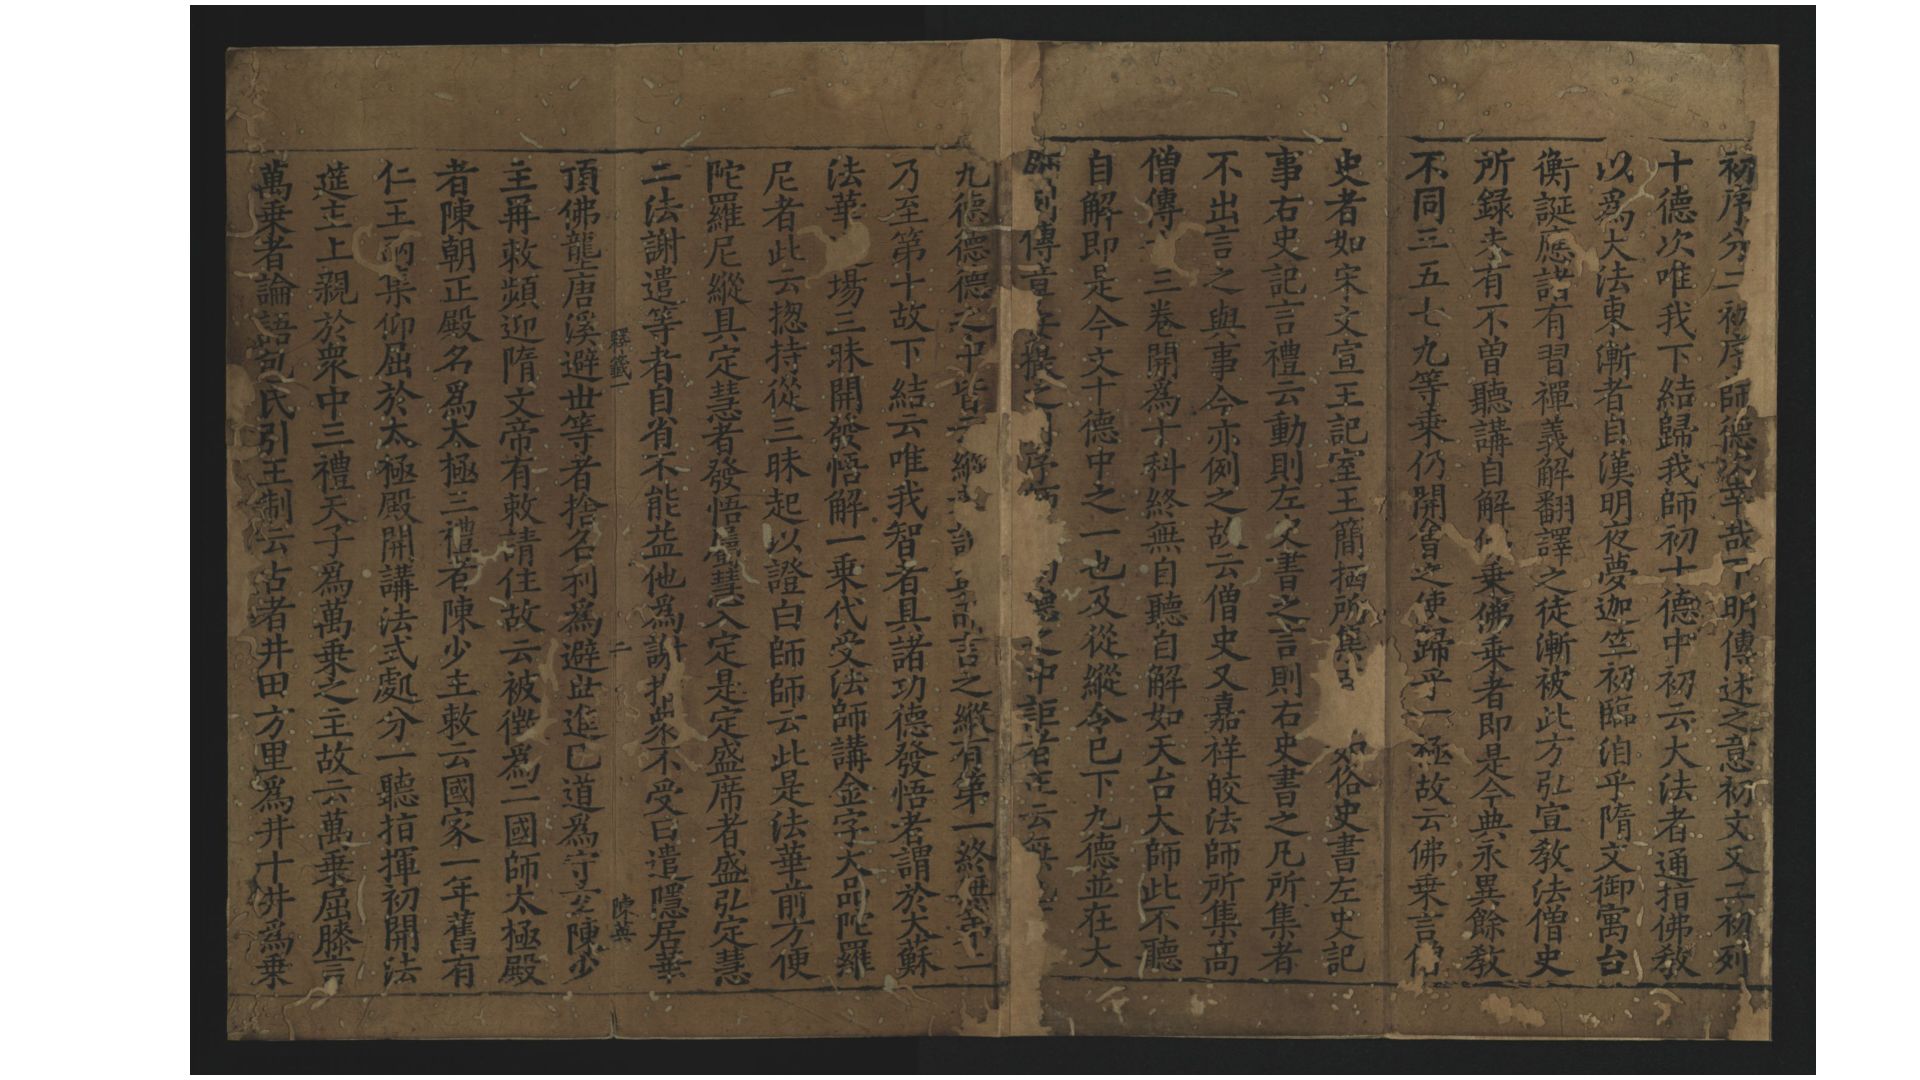 初序分二初序師德次幸哉下明傳述之意初文又二初列
十德次唯我下結歸我師初十德中初云大法者通指佛教
以爲大法東漸者自漢明夜夢迦竺初臨洎乎隋文御寓台
衡誕應諸有習禪義解翻譯之徒漸被此方弘宣教法僧史
所錄未有不曾聽講自解佛乘佛乘者即是今典永異餘教
不同三五七九等乘仍開會之使歸乎一極故云佛乘言僧
史者如宋文宣王記室王簡栖所集 如俗史書左史記
事右史記言禮云動則左史書之言則右史書之凡所集者
不出言之與事今亦例之故云僧史又嘉祥皎法師所集高
僧傳十三卷開爲十科終無自聽自解如天台大師此不聽
自解即是今文十德中之一也及從縱令已下九德並在大
師別傳章安撰之 序 德之中詎若玄云無
九德德德之中皆云縱 詎 言之縱有第一終無第二
乃至第十故下結云唯我智者具諸功德發悟者謂於大蘇
法華 場三昧開發悟解一乘代受法師講金字大品陀羅
尼者此云揔持從三昧起以證白師師云此是法華前方便
陀羅尼縱具定慧者發悟屬慧入定是定盛席者盛弘定慧
二法謝遣等者自省不能益他爲謝抑衆不受曰遣隱居等
釋籤一 二 陳英
頂佛龍唐溪避世等者捨名利爲避世進已道爲守玄陳少
主再敕頻迎隋文帝有敕請住故云被徵爲二國師太極殿
者陳朝正殿名爲太極三禮者陳少主敕云國家一年舊有
仁王兩集仰屈於太極殿開講法式處分一聽指揮初開法
筵主上親於衆中三禮天子爲萬乘之主故云萬乘屈膝言
萬乘者論語孔氏引王制云古者井田方里爲井十井爲乘